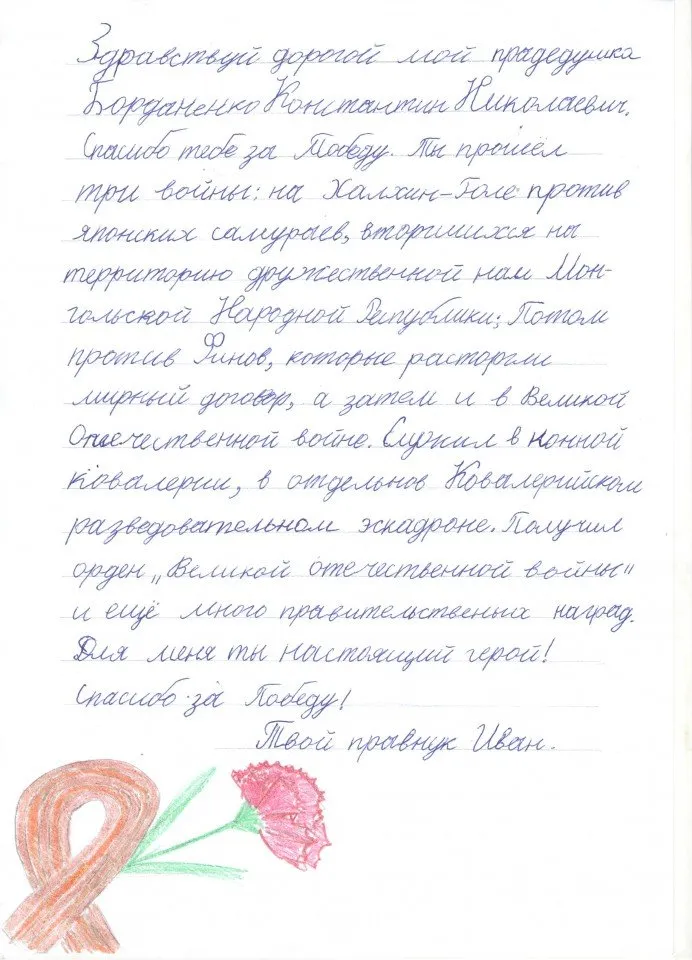 Здравствуй дорогой мой прадедушка
Борданенко Константин Николаевич.
Спасибо тебе за Победу. Ты прошёл
три войны: на Халхин-Голе против
японских самураев, вторгшихся на
территорию дружественной нам Мон-
гольской Народной Республики; Потом
против Финов, которые расторгли
мирный договор, а затем и в Великой
Отечественной войне. Служил в конной
ковалерии, в отдельнов Ковалерийском
разведовательном эскадроне. Получил
орден „Великой отечественной войны"
и ещё много правительственых наград.
Для меня ты настоящий герой!
Спасибо за Победу!
Твой правнук Иван.